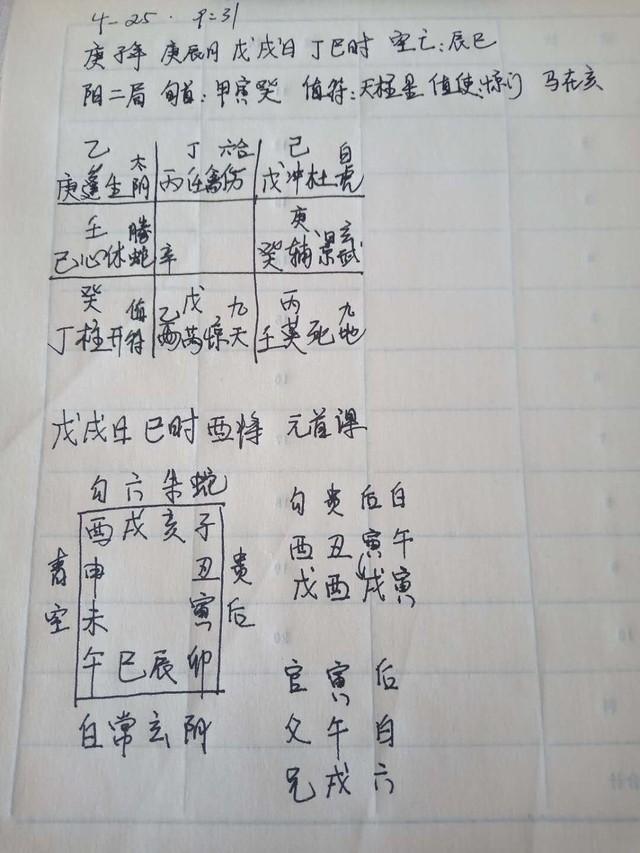 4-25. 9:31
庚子年 庚辰月 戊戌日 丁巳时 空亡:辰巳
阳二局 旬首:甲寅癸 值符:天柱星 值使:惊门 马在亥
乙 太 丁 六合 己 白
庚蓬生阴 丙任禽伤 戊冲杜虎
壬 腾 庚
己心休蛇 辛 癸辅景玄武
癸 值 戊 九 丙 九
丁柱开符 乙 惊天 壬英死地
戊戌日 巳时 酉将 元首课
勾六朱蛇 勾贵后白
酉戌亥子 酉丑寅午
青 申 丑 贵 戊酉戌寅
空 未 寅 后
午巳辰卯 官寅后
白常玄阴 父午白
兄戌六